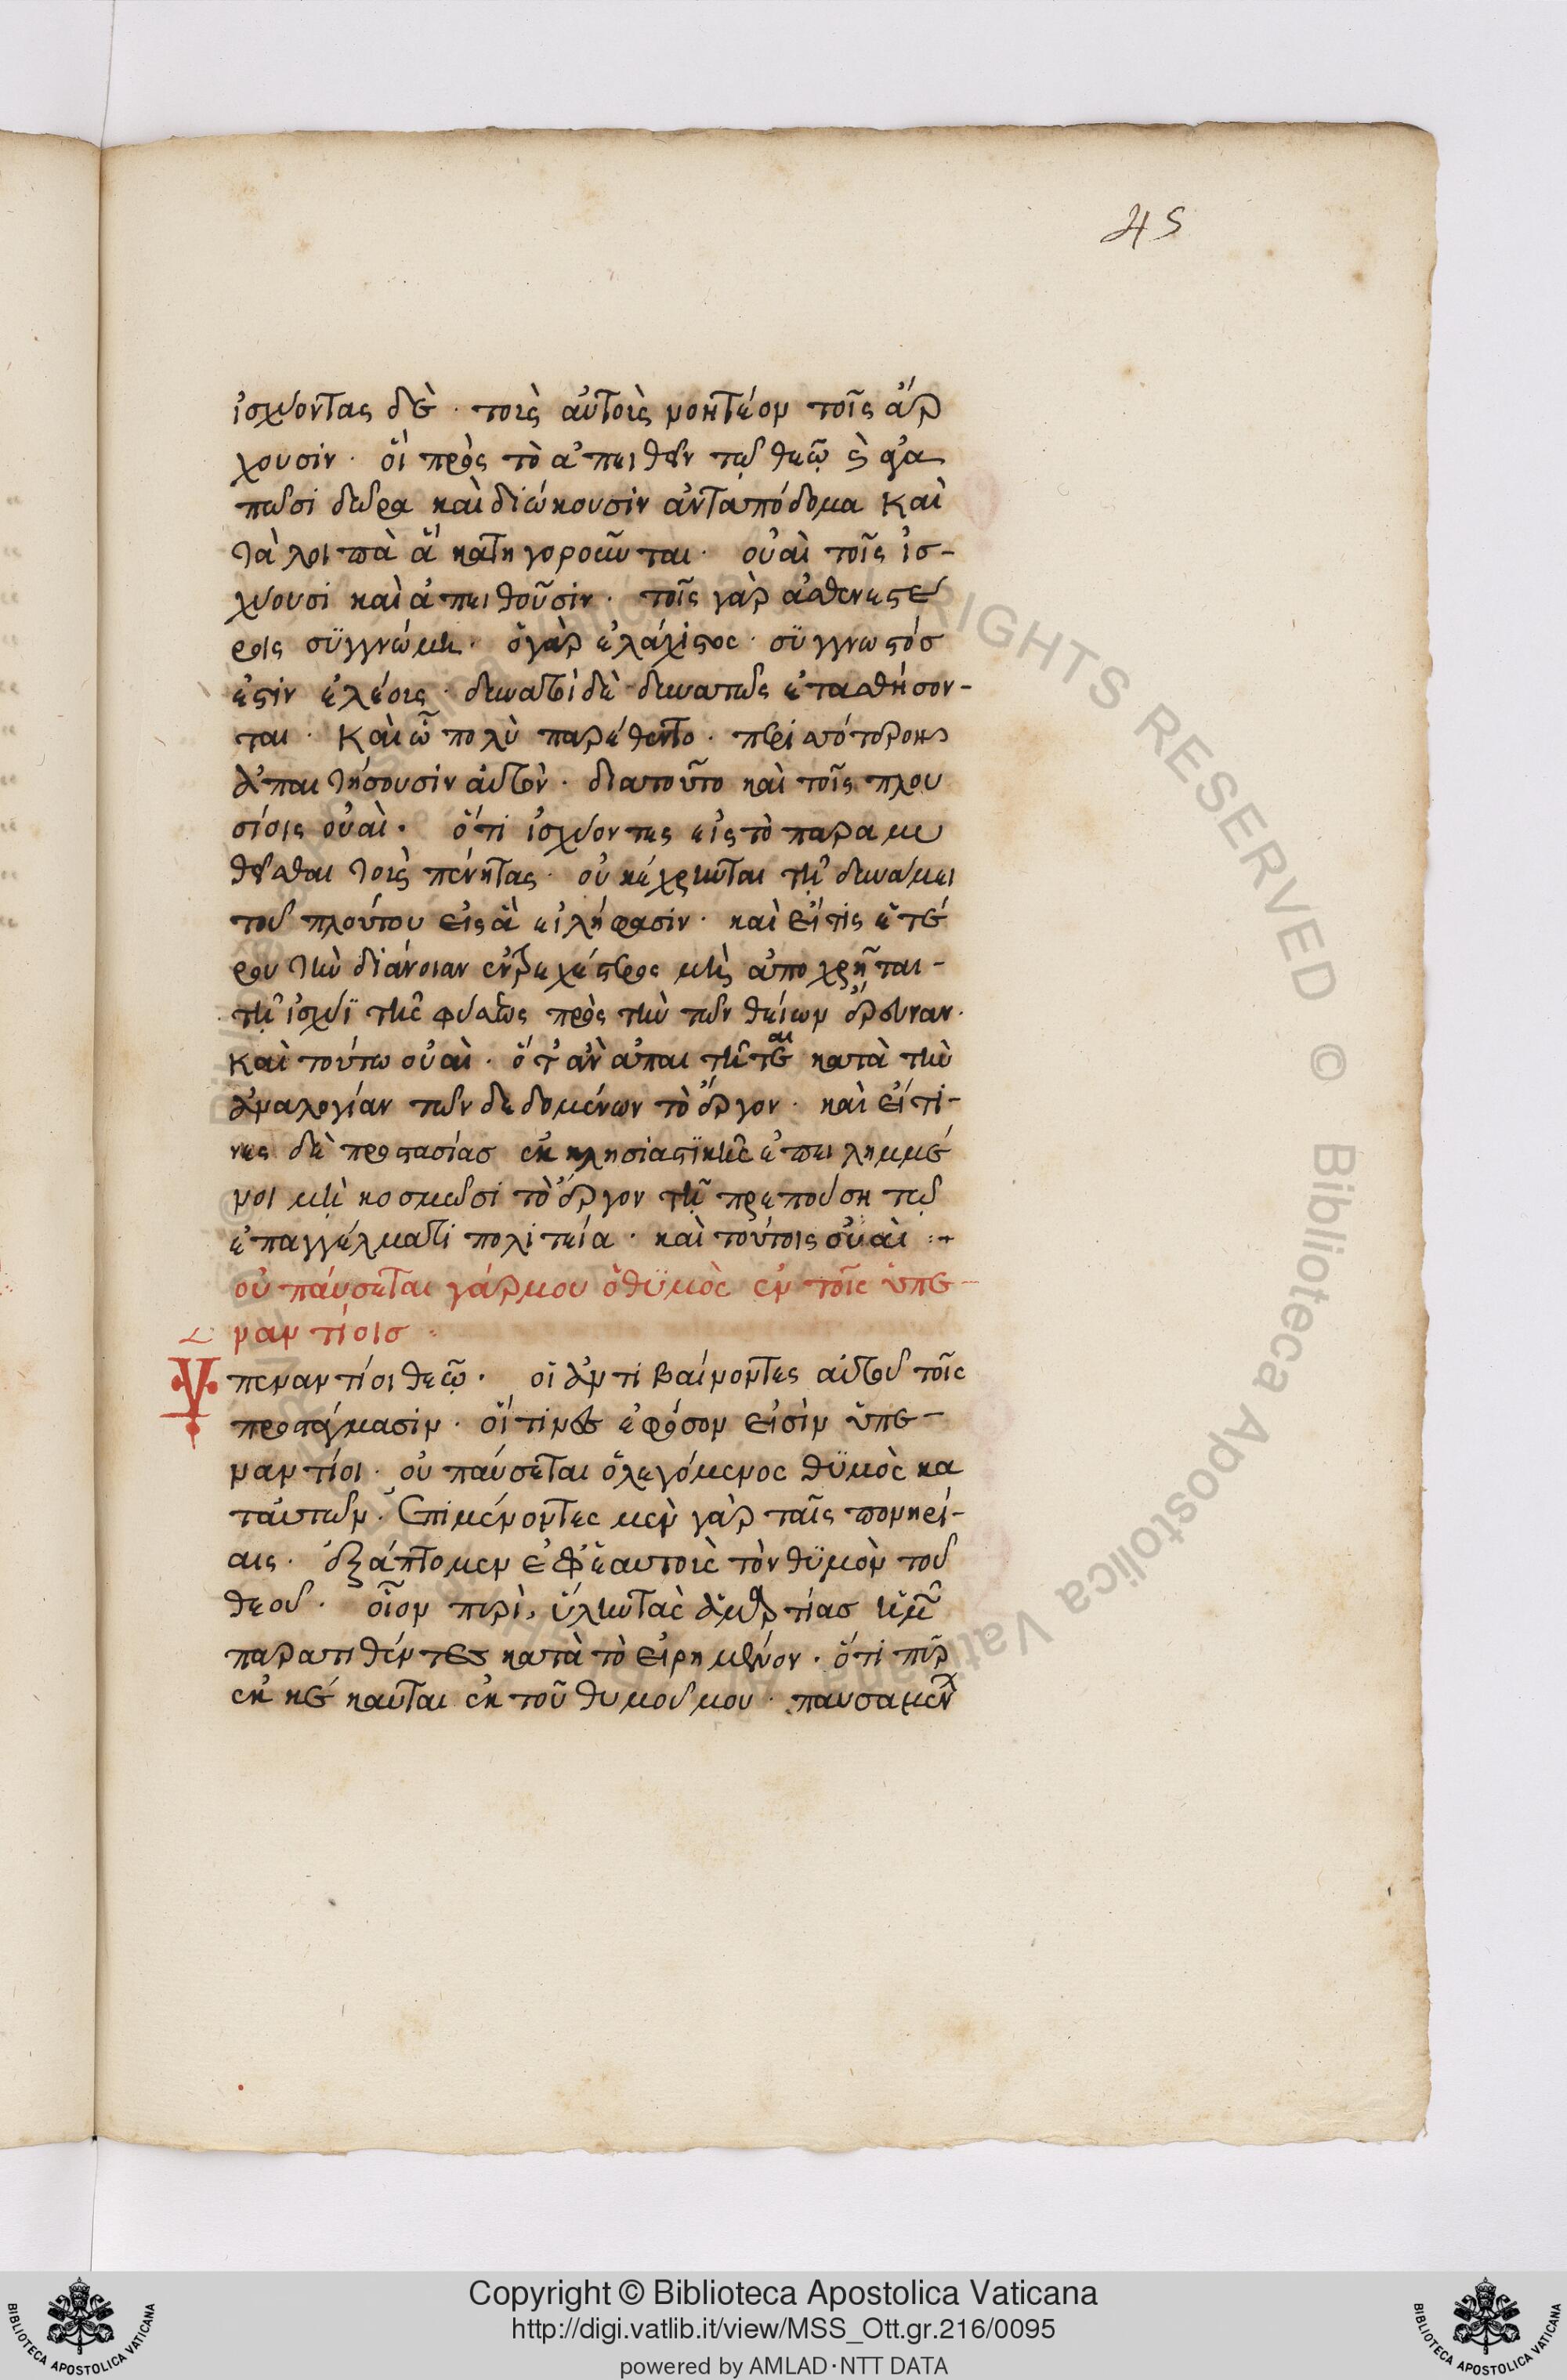 45
ἰσχύοντας δὲ· τοὺς αὐτοὺς νοητέον τοῖς ἄρ
χουσιν· οἳ πρὸς τὸ ἀπειθεῖν τῶ θεῶ καὶ ἀγα
πῶσι δῶρα καὶ διώκουσιν ἀνταπόδομα καὶ
τὰ λοιπὰ ἃ κατηγοροῦνται· οὐαὶ τοῖς ἰσ-
χύουσι καὶ ἀπειθοῦσιν· τοῖς γὰρ ἀσθενεστέ
ροις συγγνώμη· ὁ γὰρ ἐλάχιστος· συγγνωστός
ἐστιν ἐλέους· δυνατοὶ δὲ δυνατῶς ἐτασθήσον-
ται· Καὶ ὧ πολὺ παρέθεντο· περισσότερον
ἀπαιτήσουσιν αὐτόν· διατοῦτο καὶ τοῖς πλου
σίοις οὐαὶ· ὅτι ἰσχύοντες εἰς τὸ παραμυ
θεῖσθαι τοὺς πένητας· οὐ κέχρηνται τῆ δυνάμει
τοῦ πλούτου εἰς ἃ εἰλήφασιν· καὶ εἴ τις ἑτέ
ρου τὴν διάνοιαν ἐντρεχέστερος μὴ ἀποχρῆται-
τῆ ἰσχύϊ τῆς φύσεως πρὸς τὴν τῶν θείων ἔρευναν·
Καὶ τούτω οὐαὶ· ὅτ' ἂν ἀπαιτῆται κατὰ τὴν
ἀναλογίαν τῶν δεδομένων τὸ ἔργον· καὶ εἴ τι-
νες δὲ προστασίας ἐκκλησιαστικῆς ἐπειλημμέ
νοι μὴ κοσμῶσι τὸ ἔργον τῆ πρεπούση τῶ
ἐπαγγέλματι πολιτεία· καὶ τούτοις οὐαὶ :-
οὐ παύσεται γάρ μου ὁ θυμὸς ἐν τοῖς ὑπε-
ναντίοις·
Ὑπεναντίοι θεῶ· οἱ ἀντιβαίνοντες αὐτοῦ τοῖς
προστάγμασιν· οἵτινες ἐφόσον εἰσὶν ὑπε-
ναντίοι· οὐ παύσεται ὁ λεγόμενος θυμὸς κα
ταυτῶν· Ἐπιμένοντες μὲν γὰρ ταῖς πονηρί-
αις· ἐξάπτομεν ἐφ' ἑαυτοὺς τὸν θυμὸν τοῦ
θεοῦ· οἷον πυρὶ, ὕλην τὰς ἁμαρτίας ἡμῶν
παρατιθέντες κατὰ τὸ εἰρημένον· ὅτι πῦρ
ἐκκέκαυται ἐκ τοῦ θυμοῦ μου· παυσαμένων
Copyright © Biblioteca Apostolica Vaticana
http://digi.vatlib.it/view/MSS_Ott.gr.216/0095
powered by AMLAD·NTT DATA